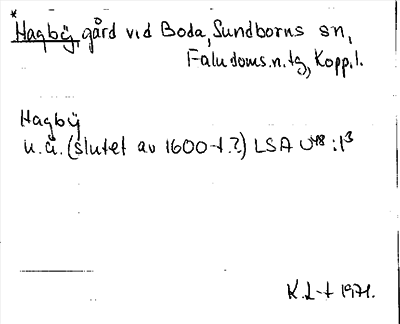 * Hagbÿ, gård vid Boda, Sundborns sn,
Faludoms.n.tg, Kopp.l.
Hagbÿ
u.å. (slutet av 1600-t.?) LSA U48:13
K.L-t 1971.